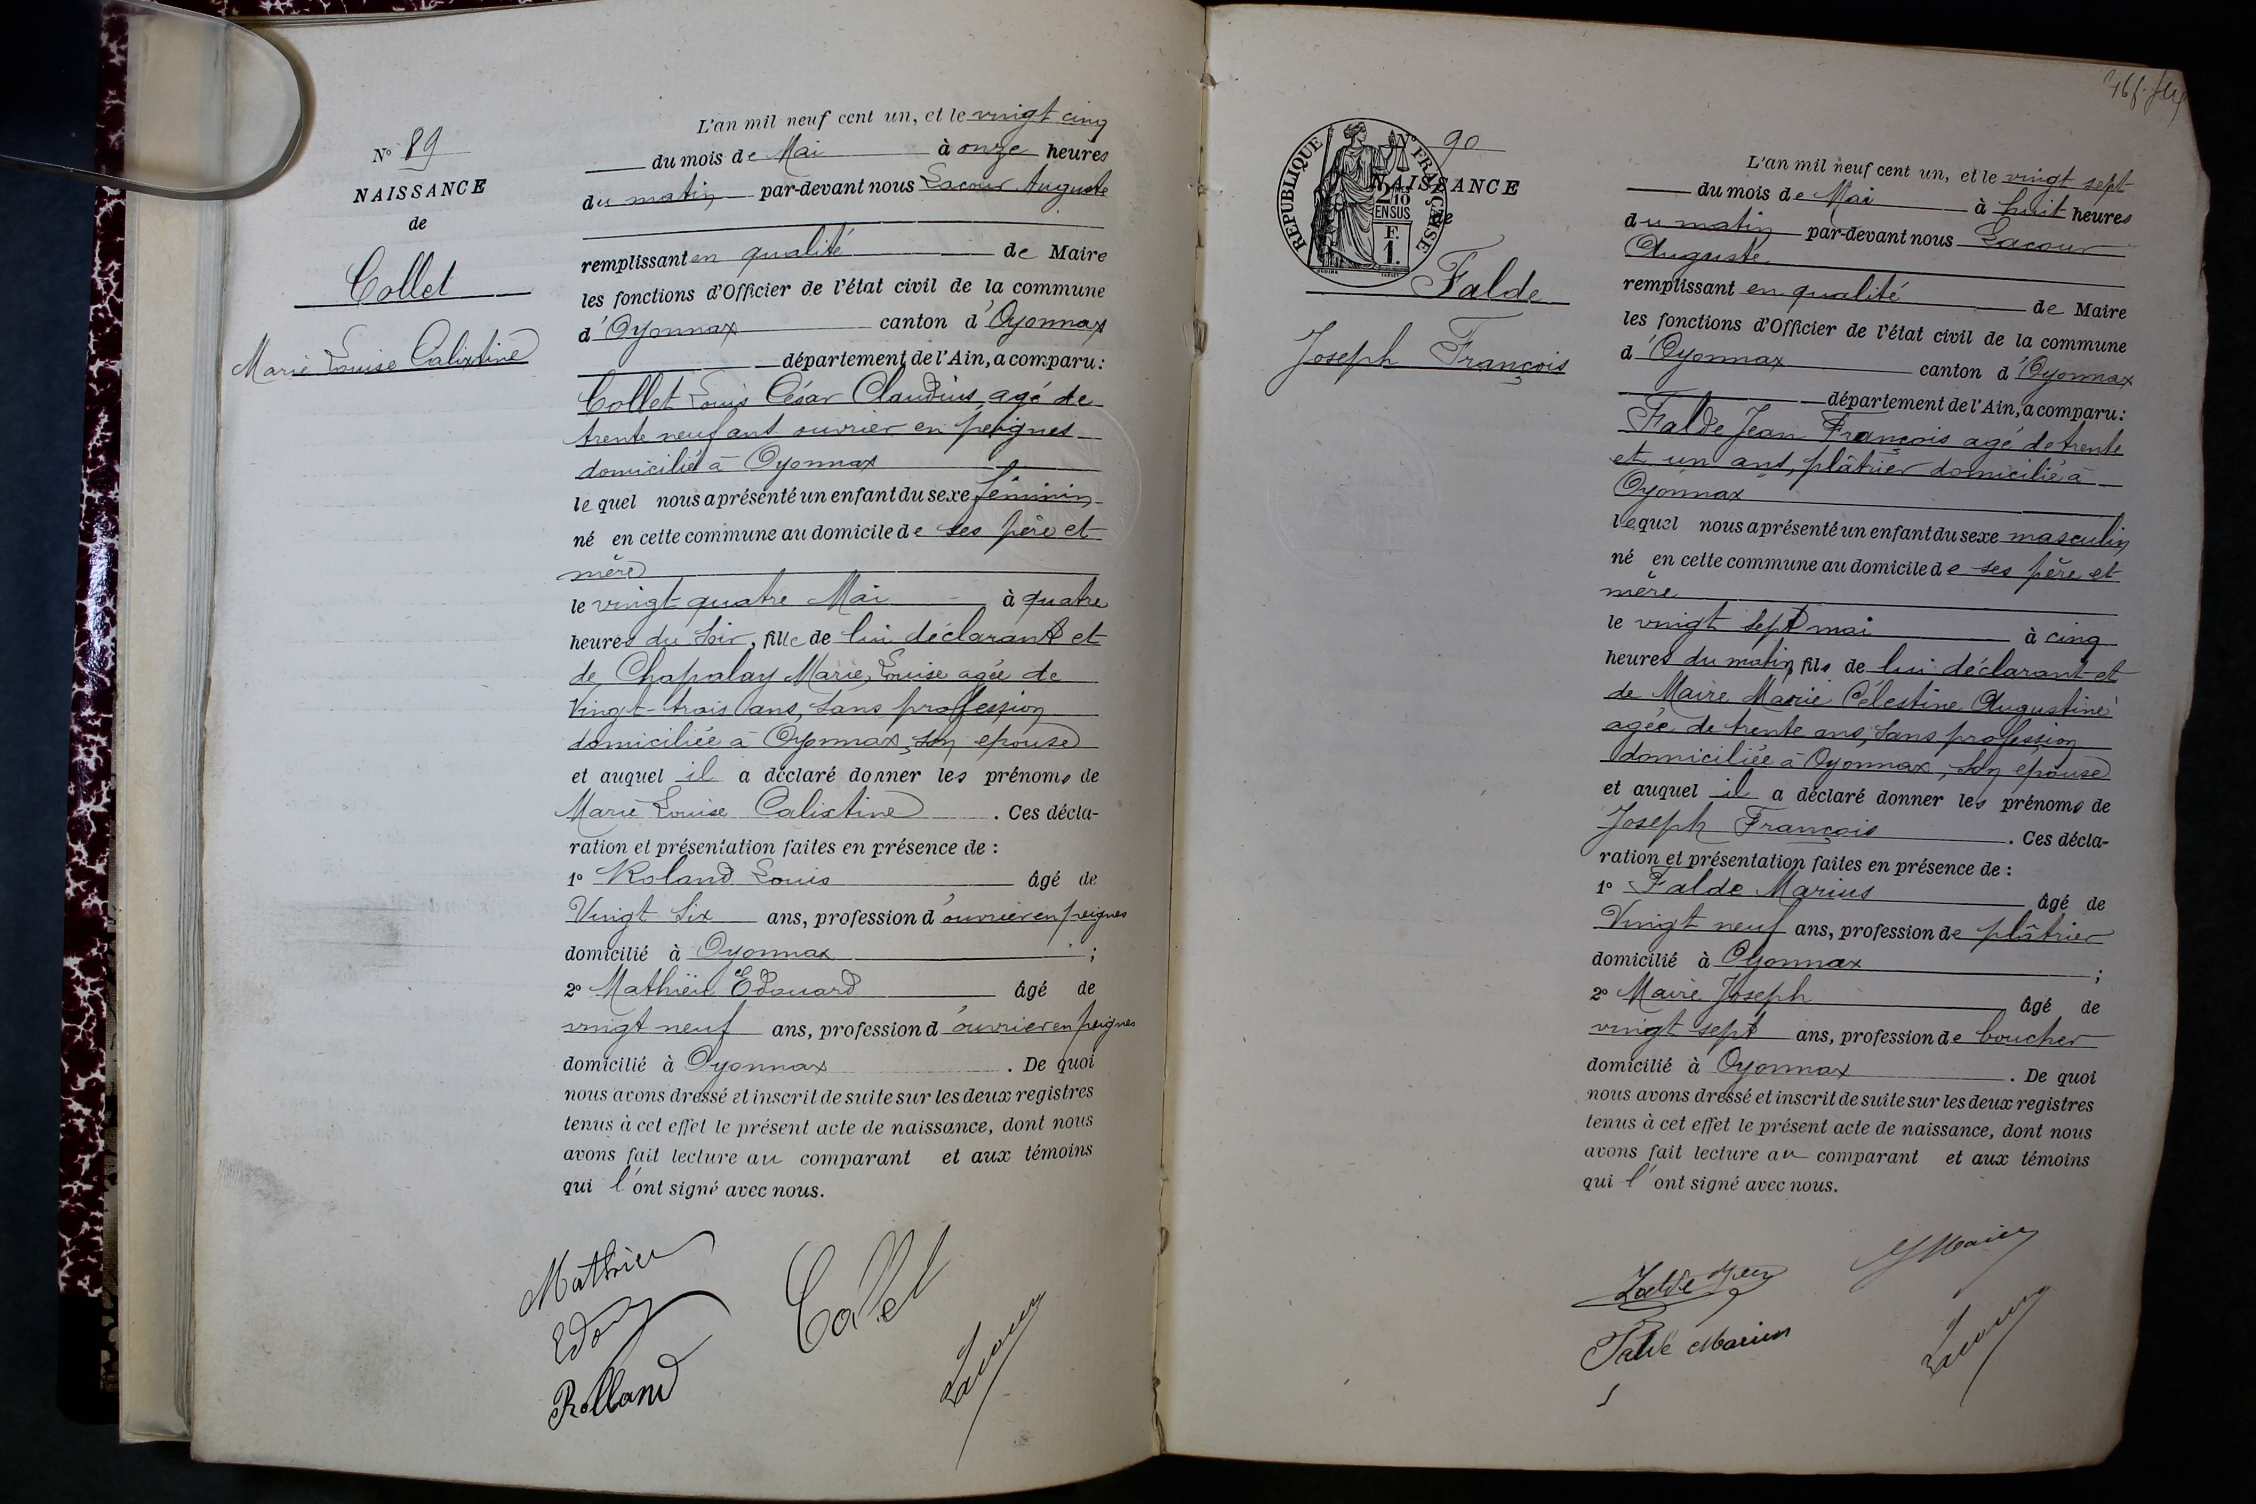 N° 89
NAISSANCE
de
Collet
Marie Louise Calixtine
L'an mil neuf cent un, et le vingt cinq
du mois de Mai à onze heures
du matin par-devant nous Lacour Auguste
remplissant en qualité de Maire
les fonctions d'Officier de l'état civil de la commune
d'Oyonnax canton d'Oyonnax
département de l'Ain, a comparu :
Collet Louis César Claudius agé de
trente neuf ans ouvrier en peignes
domicilié à Oyonnax
lequel nous a présenté un enfant du sexe féminin
né en cette commune au domicile de ses père et
mère
le vingt quatre Mai à quatre
heures du soir, fille de lui déclarant et
de Chapalay Marie Louise agée de
Vingt-trois ans, sans profession
domiciliée à Oyonnax, son epouse
et auquel il a déclaré donner les prénoms de
Marie Louise Calixtine . Ces décla-
ration et présentation faites en présence de :
1° Roland Louis âgé de
Vingt Six ans, profession d'ouvrier en peignes
domicilié à Oyonnax ;
2° Mathieu Edouard âgé de
vingt neuf ans, profession d'ouvrier en peignes
domicilié à Oyonnax . De quoi
nous avons dressé et inscrit de suite sur les deux registres
tenus à cet effet le présent acte de naissance, dont nous
avons fait lecture au comparant et aux témoins
qui l'ont signé avec nous.
Mathieu
Edou
Rolland
Collet
Lacour
N° 90
REPUBLIQUE FRANÇAISE
2/10
EN SUS
F
1.
NAISSANCE
de
Falde
Joseph François
L'an mil neuf cent un, et le vingt sept
du mois de Mai à huit heures
du matin par-devant nous Lacour
Auguste
remplissant en qualité de Maire
les fonctions d'Officier de l'état civil de la commune
d'Oyonnax canton d'Oyonnax
département de l'Ain, a comparu :
Falde Jean François agé de trente
et un ans, plâtrier domicilié à
Oyonnax
lequel nous a présenté un enfant du sexe masculin
né en cette commune au domicile de ses père et
mère
le vingt sept mai à cinq
heures du matin fils de lui déclarant et
de Maire Marie Célestine Augustine
agée de trente ans, sans profession
domiciliée à Oyonnax, son epouse
et auquel il a déclaré donner les prénoms de
Joseph François . Ces décla-
ration et présentation faites en présence de :
1° Falde Marius âgé de
Vingt neuf ans, profession de plâtrier
domicilié à Oyonnax ;
2° Maire Joseph âgé de
vingt sept ans, profession de boucher
domicilié à Oyonnax . De quoi
nous avons dressé et inscrit de suite sur les deux registres
tenus à cet effet le présent acte de naissance, dont nous
avons fait lecture au comparant et aux témoins
qui l'ont signé avec nous.
Falde Jean
J Maire
Falde Marius
Lacour